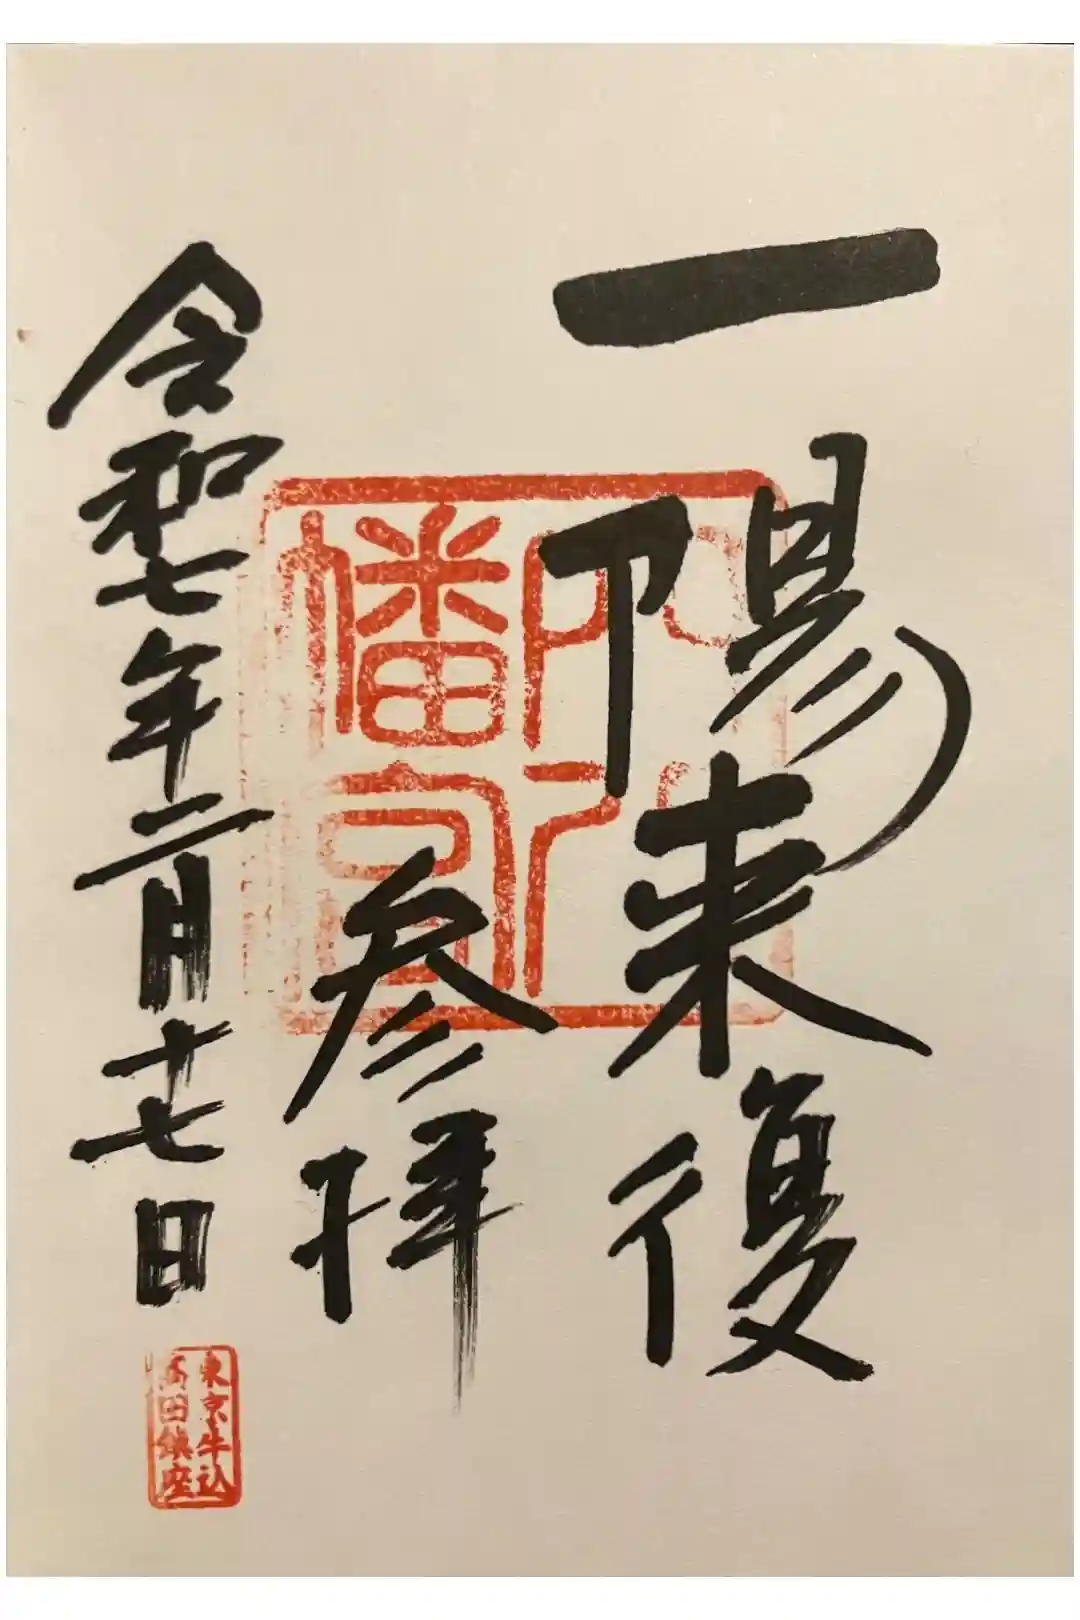 一陽来復
参拝
令和七年二月十七日
東京牛込
高田鎮座